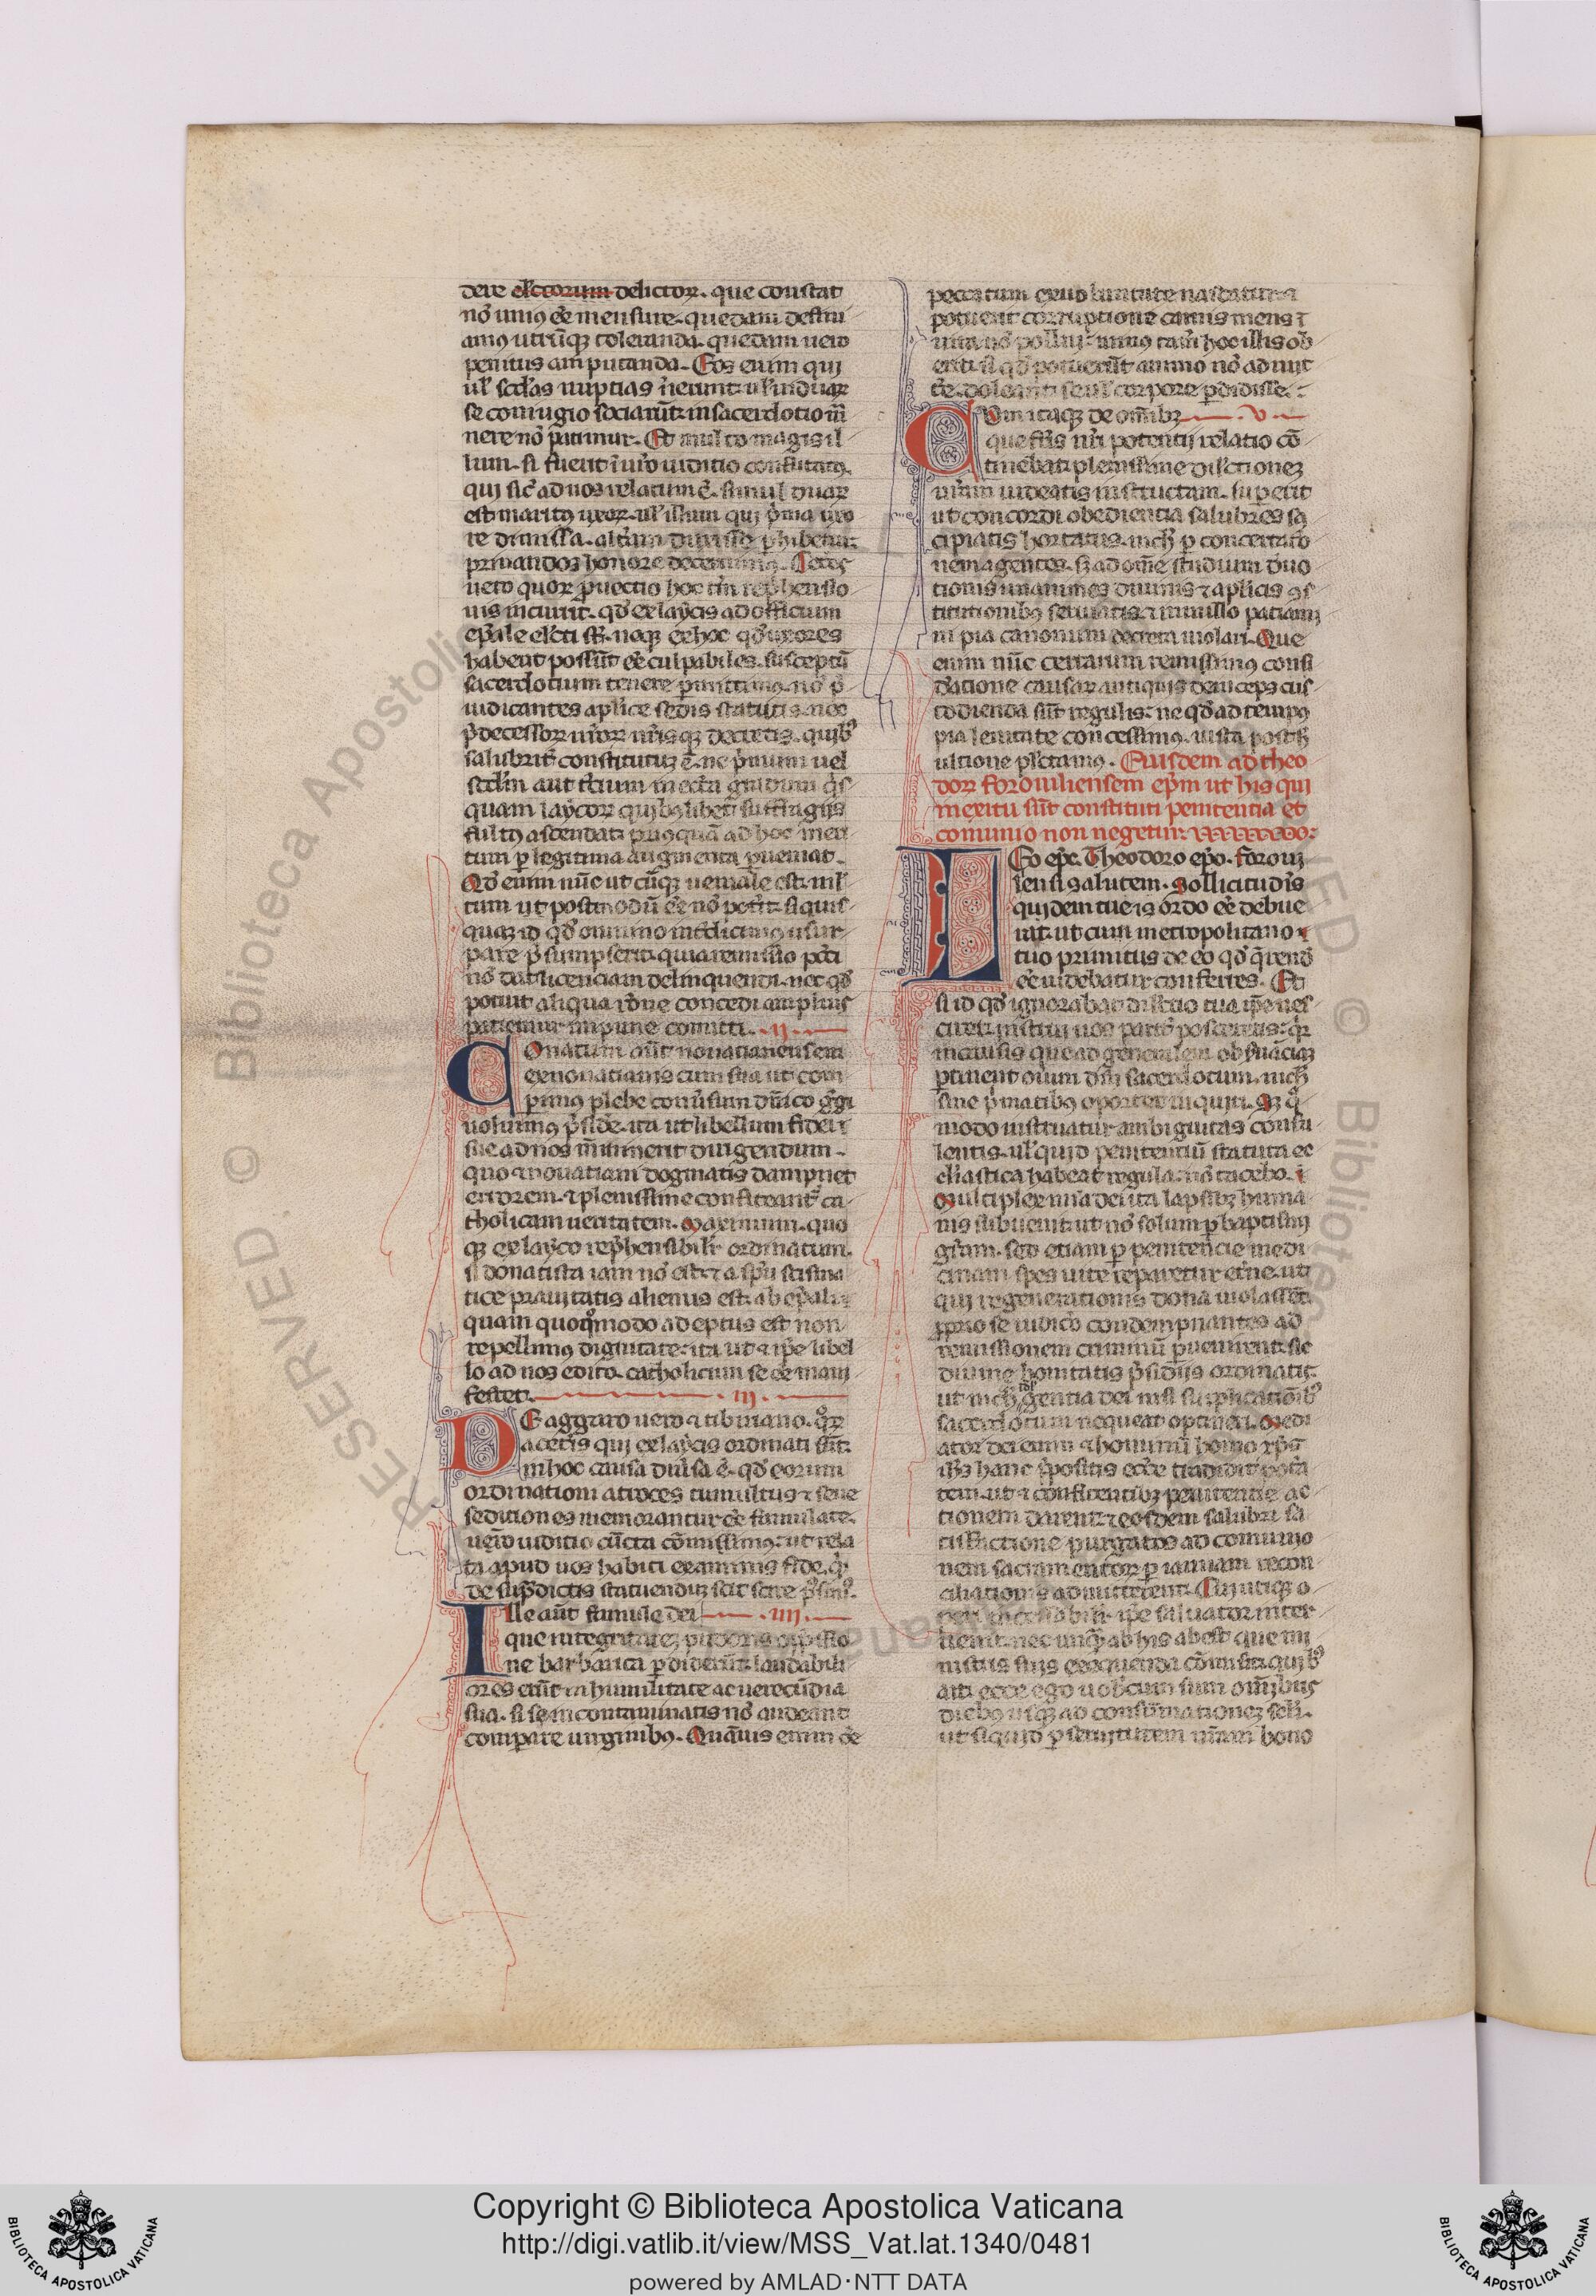 dere electorum delictoꝝ. que constat
nō uniꝰ eē mensure. quedam destru
amꝰ utrūqꝫ toleranda. quedam uero
penitus amputanda. Eos enim qui
ul' scd'as nuptias inerunt. ul' uiduaꝝ
se coniugio sociarūt. in sacerdotio ma
nere nō patimur. Et multo magis il
lum. si fuerit
qui sic' ad nos relatum ē. simul duaꝝ
est maritꝰ uxoꝝ. ul' illum qui p'ma uxo
re dimissa. alt'am duxisse p'hibetur.
priuandos honore decernimꝰ. Cetos
uero quoꝝ ꝓuectio hoc tm̄ rep'hensio
nis incurrit. qd' ex laycis ad officium
ep'ale el'cti sūt. neqꝫ ex hoc qd' uxores
habent possūt eē culpabiles. susceptū
sacerdotium tenere permittimꝰ. nō p'
iudicantes aplice sedis statutis. nec
p'decessoꝝ nr̄oꝝ nr̄isqꝫ decretis. quibꝰ
salubrit' constitutuꝫ ē. ne p'mum uel
scd'm aut t'cium in eccl'ia gradum q's
quam laycoꝝ quibꝰlibet suffragijs
fultꝰ ascendat. priusquā ad hoc meri
tum per legitima augmenta ꝑueniat.
Qd' enim nūc ut cūqꝫ ueniale est. nil'
tum ut postmodū eē nō pot'it. si quis
quaꝫ id qd' omnino int'dicimꝰ usur
pare p'sumpserit. quia remissio pcc̄i
nō dat licenciam delinquendi. nec qd'
potuit aliqua rōne concedi amplius
patiemur impune comitti. .ij.
Donatum aūt nouatianensem
ex nouatianis cum sua ut com
perimꝰ plebe conu'sum dn̄ico g'gi
uolumꝰ p'sidē. ita ut libellum fidei
sue ad nos meminerit dirigendum.
quo & nouatiani dogmatis dampnet
errorem. & plenissime confiteant' ca
tholicam ueritatem. Maximum. quo
qꝫ ex layco rep'hensibilit' ordinatum.
si donatista iam nō est. & a sp'u scisma
tice prauitatis alienus est. ab ep'ali
quam quoqͦmodo adeptus est non
repellimus dignitate. ita ut & ip'e libel
lo ad nos edito. catholicum se eē mani
festet. .iij.
DE aggaro uero & tibiriano.
acetis qui ex laycis ordinati sūt.
in hoc causa diu'sa ē. qd' eorum
ordinationi atroces tumultus & seue
seditiones memorantur eē famulate.
ueſtro iuditio cūcta cōmissimꝰ. ut rela
ta apud uos habiti examinis fide. q'
de sup'dictis statuendū sit scire p'simꝰ.
Ille aūt famule dei .iiij.
que integritateꝫ pudoris oppressio
ne barbarica perdiderūt. laudabili
ores erūt in humilitate ac uerecūdia
sua. si se incontaminatis nō audeant
comparare uirginibꝰ. Quāuis enim oē
peccatum ex uoluntate nascatur &
potuerit corruptione carnis mens
inuicta nō pollui. minus tam̄ hoc illis ob
erit. si qd' potuerūt animo nō admit
t'e. doleant se ul' corpore perdidisse.
Cum itaqꝫ de om̄ibꝫ .v.
que fr̄is nr̄i potentij relatio cō
tinebat. plenissime dil'ctioneꝫ
ur̄am uideatis instructam. superest
ut concordi obedientia salubres su
cipiatis hortatus. nich' per contentio
nem agentes. sꝫ ad om̄e studium deuo
tionis unanimes diuinis & aplicis cōs
titutionibꝰ seruiatis. & in nullo patiami
ni pia canonum decreta uiolari. Que
enim nūc certarum remissimꝰ consi
d'atione causaꝝ antiquis deinceps cus
todienda sūt regulis. ne qd' ad tempꝰ
pia lenitate concessimꝰ. iusta posth'
ultione plectamꝰ. Eiusdem ad theo
doꝝ foroiuliensem ep̄m ut his qui
in exitu sūt constituti penitentia et
comunio non negetur.
LEo ep̄c. Theodoro ep̄o. foroiu
liensi salutem. Sollicitudīs
quidem tue is ordo eē debue
rit. ut cum metropolitano
tuo primitus de eo qd' q'rend'
eē uidebatur conferres. Et
si id qd' ignorabat dil'ctio tua ip̄e nes
ciret. instrui uos pariter posceretis. q'r
in causis que ad generalem obseruāciaꝫ
pertinent oīum dn̄i sacerdotum. nich'
sine p'matibꝰ oportet inquiri. Sꝫ q'
modo instruatur ambiguitas consu
lentis. ul' quid penitentiū statuta ec
cl'iastica habeat regula. nō tacebo.
Multiplex mīa dei ita lapsibꝫ huma
nis subuenit. ut nō solum per baptismi
gr̄am. sed etiam per penitencie medi
cinam spes uite reparetur et'ne. ut
qui regenerationis dona uiolassēt.
ꝓprio se iudicio condempnantes ad
remissionem criminū peruenirent. sic
diuine bonitatis p'sidijs ordinatis.
ut indulgentia dei nisi supplicatiōibꝰ
sacerdotum nequeat optineri. Medi
ator dei enim & hominū homo xp̄s
ih̄s hanc p'positis ecc'e tradidit pot'a
tem. ut & confitentibꝫ penitentie ac
tionem darent. & eosdem salubri sa
tisfactione purgatos ad comunio
nem sacramentoꝝ per ianuam recon
ciliationis admitterent. Cui utiqꝫ o
peri incessabilit' ip̄e saluator inter
uenit. nec unq'm ab his abest que mi
nistris suis exequenda cōmisit. quibꝰ
ait. ecce ego uobiscum sum omnibus
diebꝰ usqꝫ ad consūmationeꝫ sc'li.
ut si quid per seruitutem nr̄am bono
Copyright © Biblioteca Apostolica Vaticana
http://digi.vatlib.it/view/MSS_Vat.lat.1340/0481
powered by AMLAD·NTT DATA
BIBLIOTECA APOSTOLICA VATICANA
BIBLIOTECA APOSTOLICA VATICANA